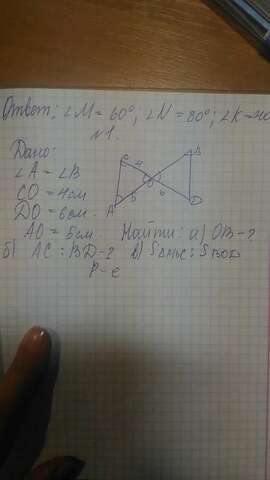 Ответ: ∠M = 60°; ∠N = 80°; ∠K = 40
№1.
Дано:
∠A = ∠B
CO = 4см
DO = 6см
AO = 5см
C 4 B
O
A 5 6 D
Найти: а) OB - ?
б) AC : BD - ? в) S : S